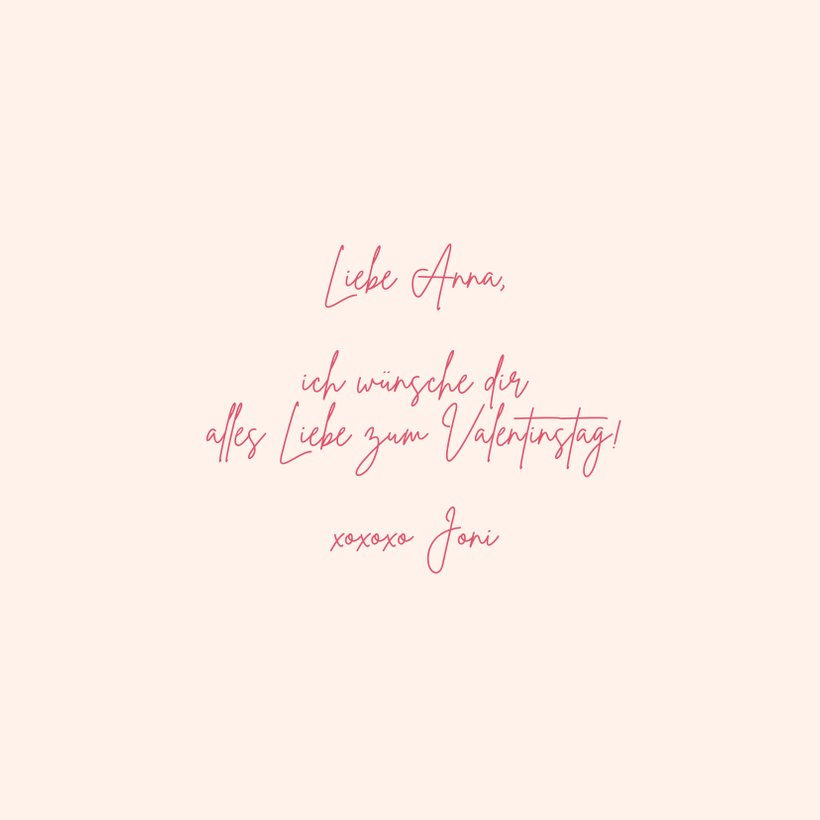 Liebe Anna,
ich wünsche dir
alles Liebe zum Valentinstag!
xoxoxo Joni